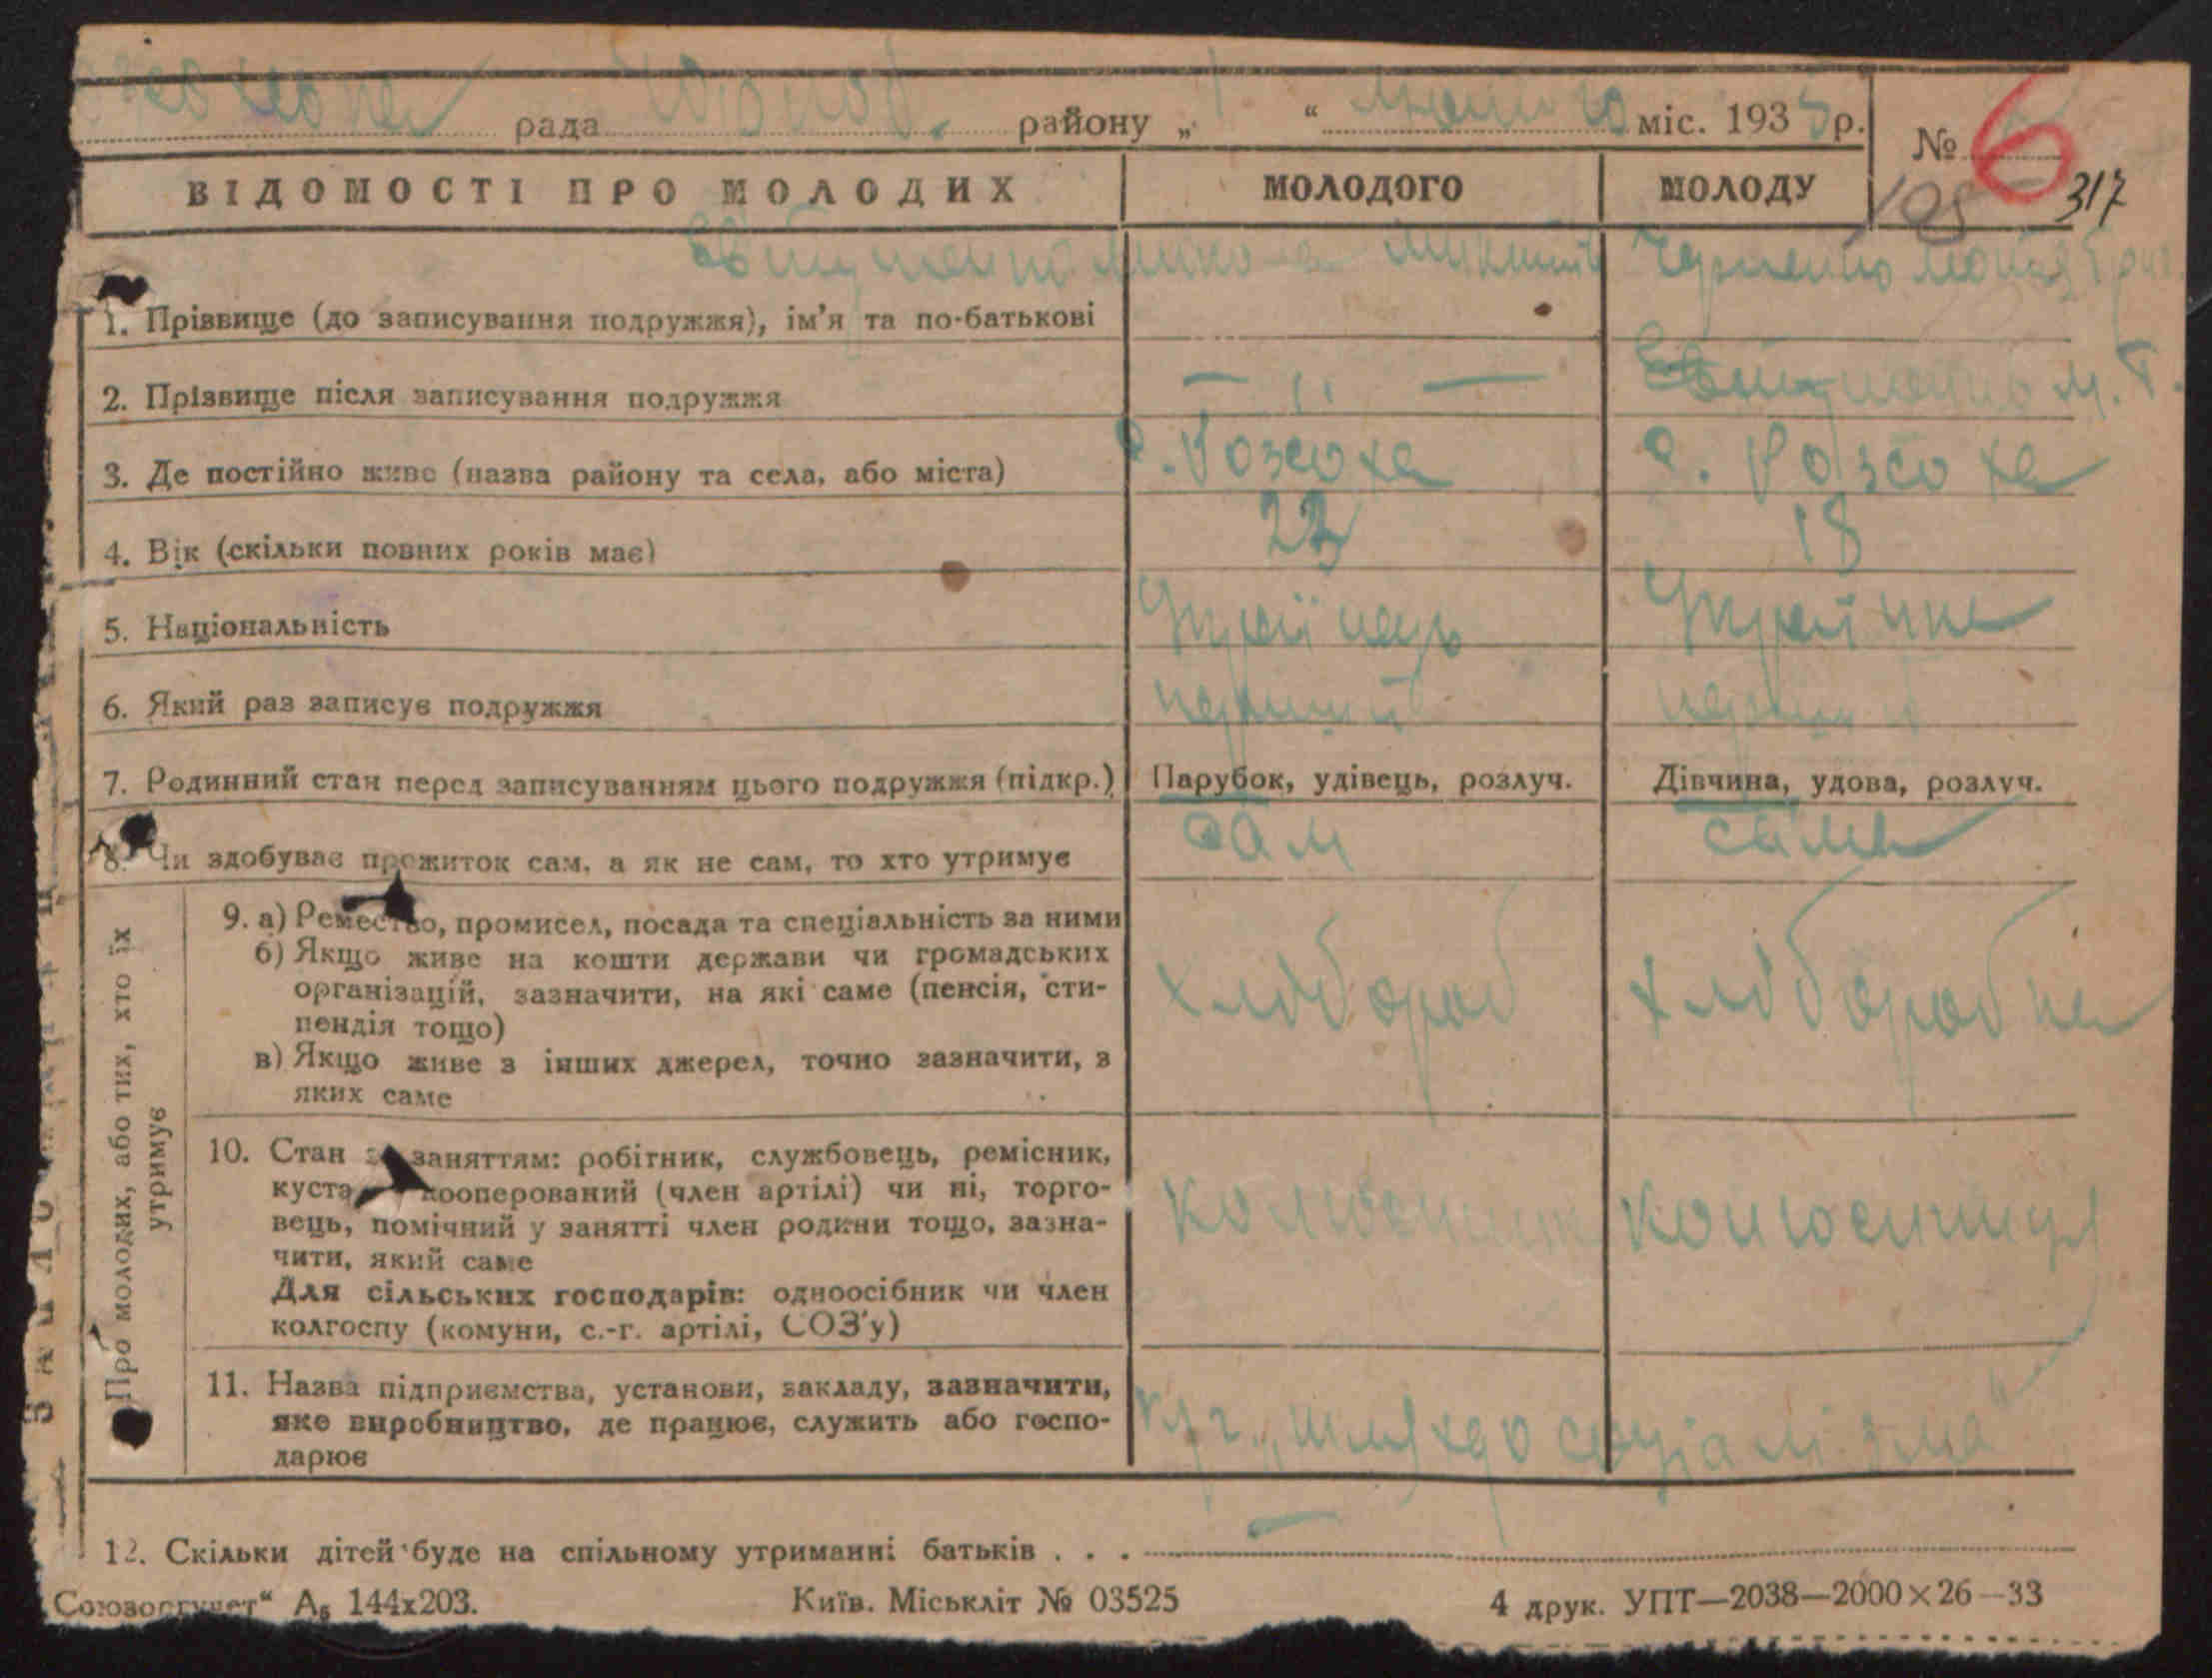 рада району „ 1 “ міс. 193 р. № 6
105 317
ВІДОМОСТІ ПРО МОЛОДИХ МОЛОДОГО МОЛОДУ
1. Прізвище (до записування подружжя), ім’я та по-батькові
2. Прізвище після записування подружжя — „ — М. Г.
3. Де постійно живе (назва району та села, або міста) с. Розсоха с. Розсоха
4. Вік (скільки повних років має) 18
5. Національність Українець Українка
6. Який раз записує подружжя перший перший
7. Родинний стан перед записуванням цього подружжя (підкр.) Парубок, удівець, розлуч. Дівчина, удова, розлуч.
8. Чи здобуває прожиток сам, а як не сам, то хто утримує сам сама
Про молодих, або тих, хто їх
утримує
9. а) Ремество, промисел, посада та спеціальність за ними
б) Якщо живе на кошти держави чи громадських
організацій, зазначити, на які саме (пенсія, сти-
пендія тощо) хлібороб хліборобка
в) Якщо живе з інших джерел, точно зазначити, з
яких саме
10. Стан за заняттям: робітник, службовець, ремісник,
кустар кооперований (член артілі) чи ні, торго-
вець, помічний у занятті член родини тощо, зазна-
чити, який саме
Для сільських господарів: одноосібник чи член
колгоспу (комуни, с.-г. артілі, СОЗ’у)
11. Назва підприємства, установи, закладу, зазначити,
яке виробництво, де працює, служить або госпо-
дарює „Шлях до соціалізма“
12. Скільки дітей буде на спільному утриманні батьків . . . —
Союзоргучет“ А5 144х203. Київ. Міськліт № 03525 4 друк. УПТ—2038—2000×26—33